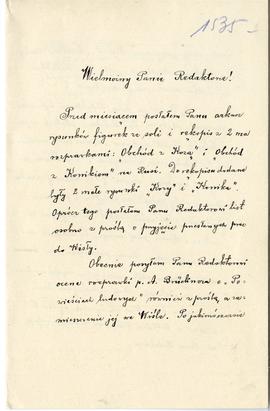 1535-
Wielmożny Panie Redaktorze!
Przed miesiącem posłałem Panu arkusz
rysunków figurek ze soli i rękopis z 2 ma
rozprawkami: "Obchód z Kozą" i "Obchód
z Konikiem" na Rusi. Do rękopisu dodane
były 2 małe rysunki "Kozy" i "Konika".
Oprócz tego posłałem Panu Redaktorowi list
osobno z prośbą o przyjęcie przesłanych prac
do Wisły.
Obecnie posyłam Panu Redaktorowi
ocenę rozprawki p. A. Brücknera o "Po-
wieściach ludowych" również z prośbą o za-
mieszczenie jej we Wiśle. Po jakimś czasie